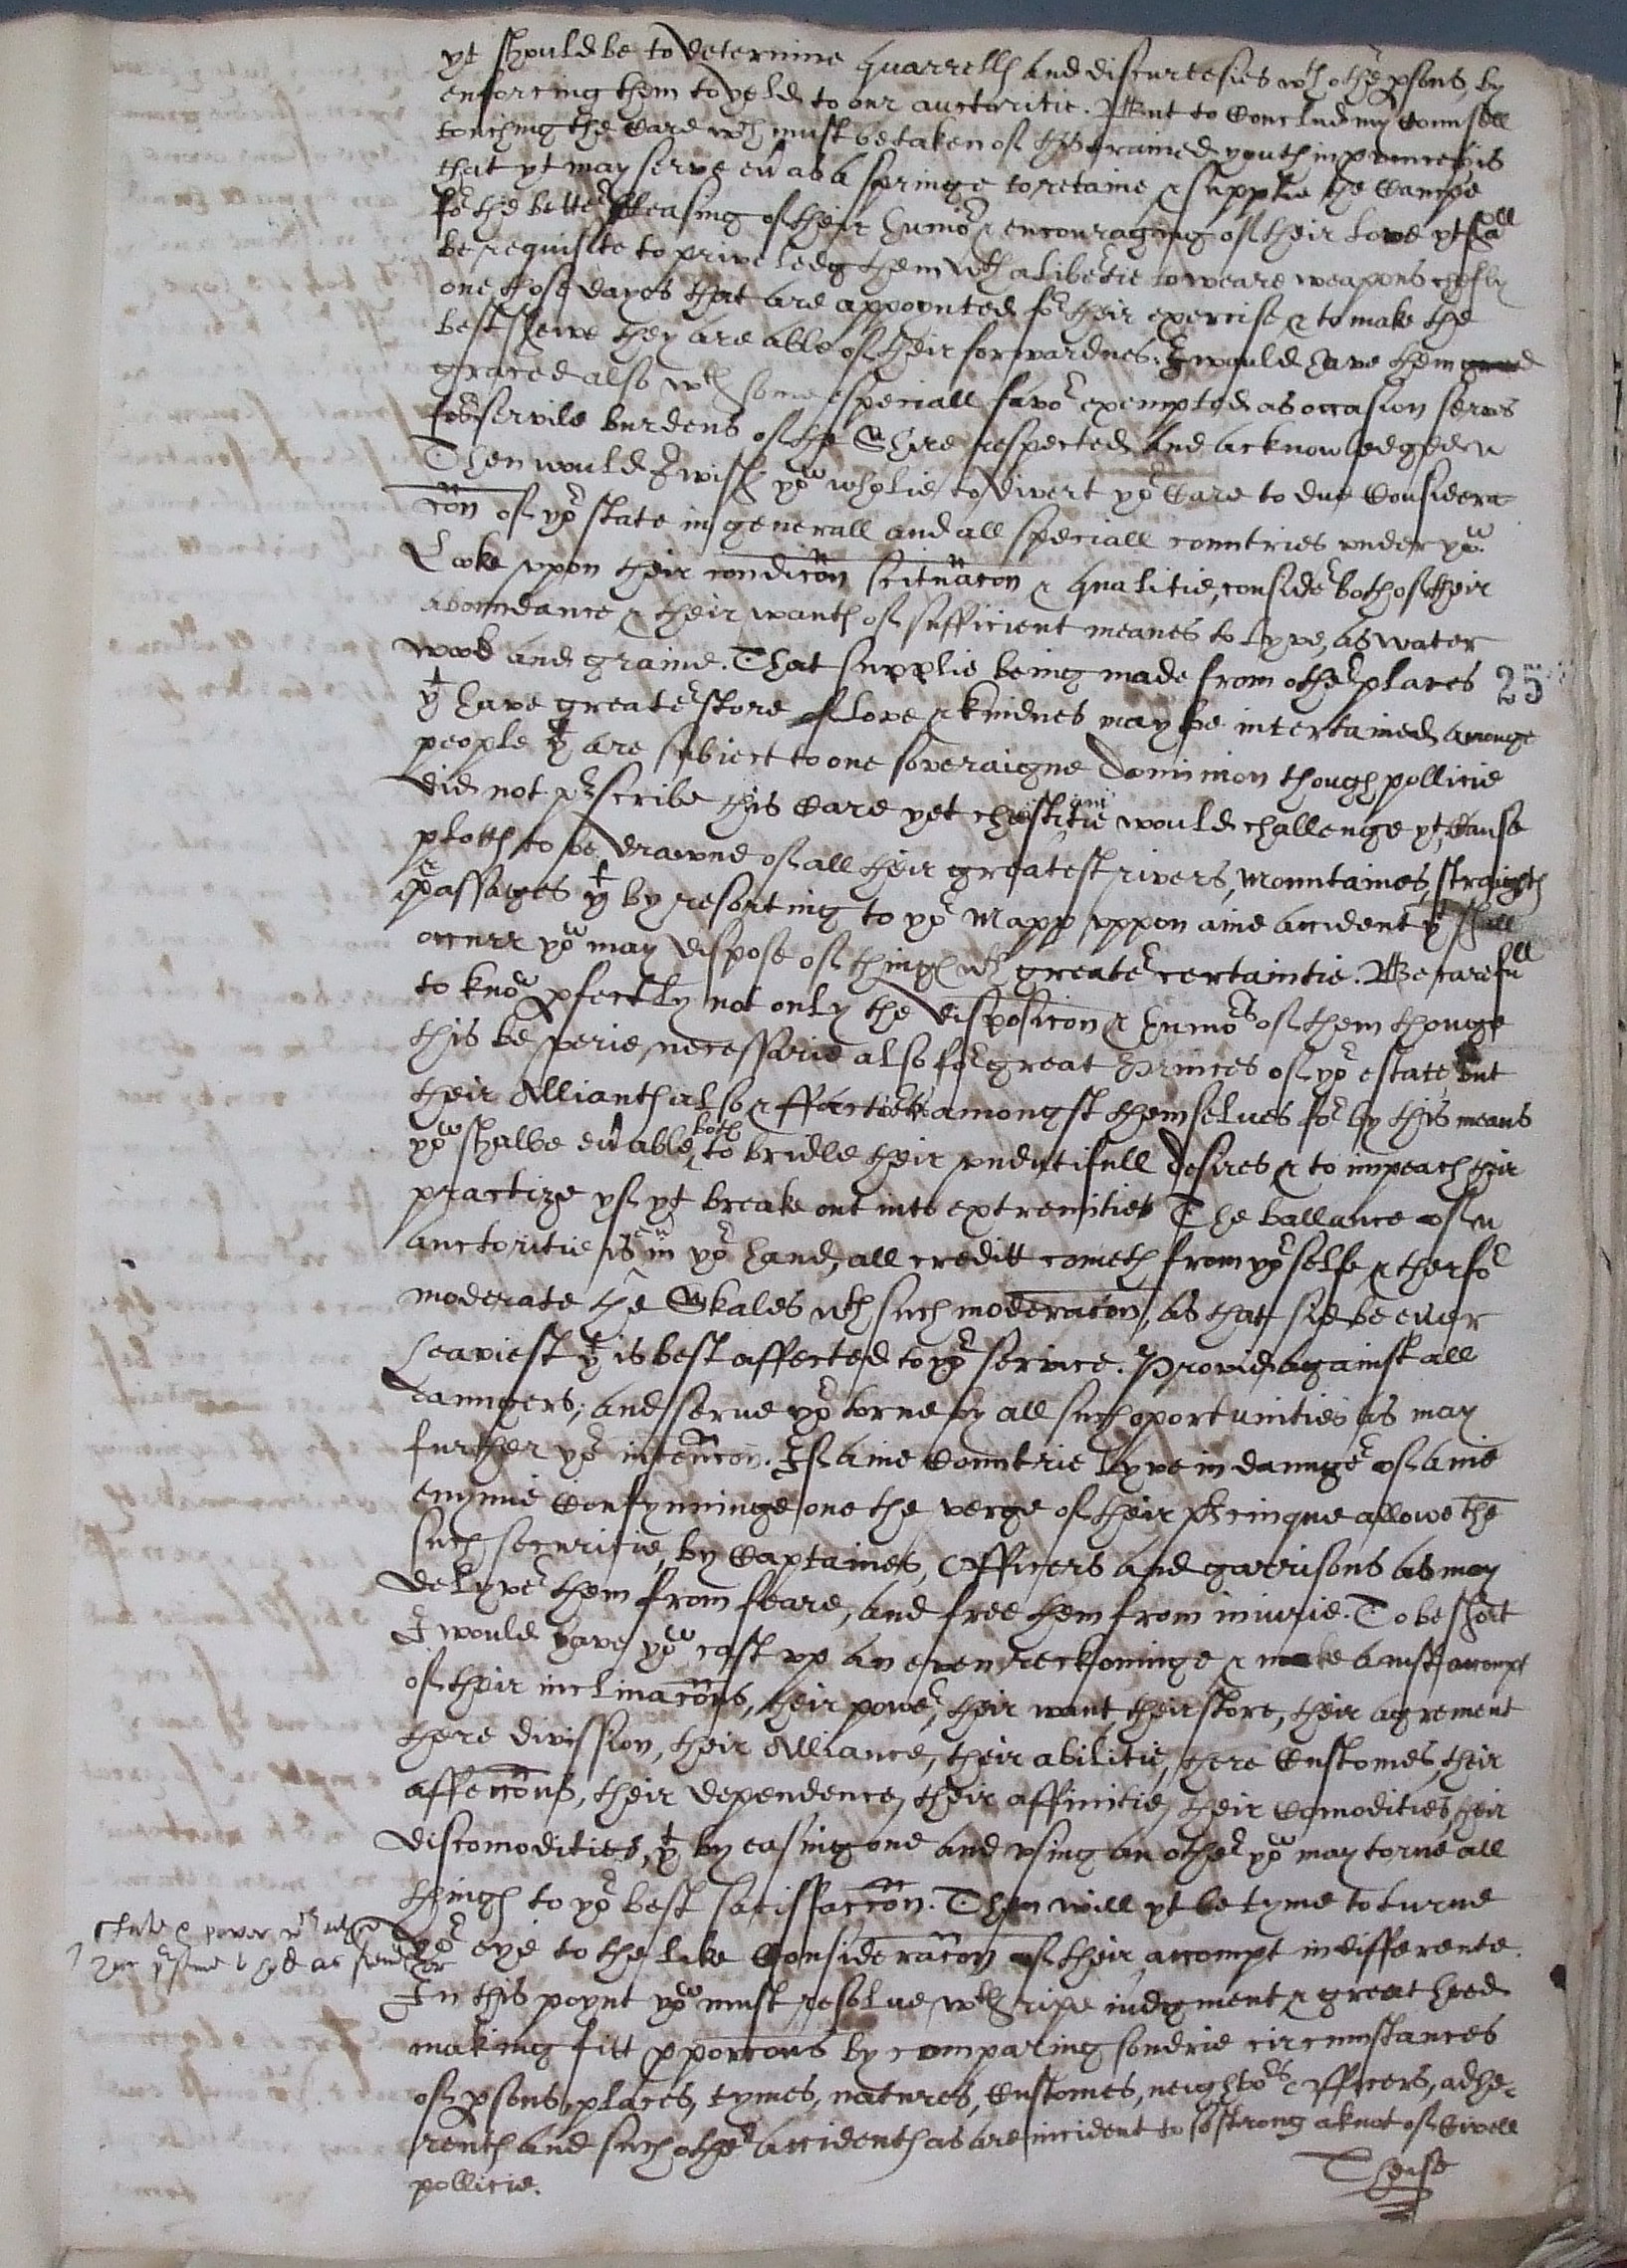 yt should be to determine quarrells and discurtesies wth othe psons, by
enforcing them to yeld to our auctoritie. But to Conclud my Counsell
touching the Care wch must be taken of this trained youth in is
that yt may serve eu as a springe to retaine & supplie the Campe
for the better pleasing of their humor & encouraging of their love yt shall
be requisite to priveledg them wth a libertie to weare weapons chefly
one those dayes that are appoynted for their exercise & to make the
best shewe they are able of their forwardnes. I would have them
graced also wth some especiall favor exempted as occasion serves
from servile burdens of the Shire respected and acknowledged
Then would I wish you wholie to divert yor Care to due Considera
con of yor state in generall and all speciall countries under you.
Looke upon their condicon scituacon & qualitie, consider both of their
aboundance & their wants of sufficient meanes to lyve, as water
wood and graine. That supplie being made from other places
yt have greater store of love & kindnes may be intertained amonge
people yt are subiect to one soveraigne Dominion though pollicie
did not prscribe this Care yet christianitie would challenge yt, Cause
plotts to be drawne of all their greatest rivers, Mountaines, straights
& passages yt by resorting to yor Mapp uppon anie accident yt shall
occurr you may dispose of things wth greater certaintie. Be carefull
to know pfectly not only the disposicon & humors of them though
this be verie necessarie also for great Princes of yor estate but
their Alliants also & ffactions amongst themselves for by this means
you shalbe eu able both to bridle their undutifull desires & to impeach their
practize yf yt breake out into extremities The ballance of
auctoritie is in yor hand, all creditt cometh from yorselfe & therfor
moderate the Skales wth such moderacon, as that side be ever
heaviest yt is best affected to yor service. Provid against all
daungers, and serve yor torne by all such oportunities as may
further yor intencon. If anie Countrie lyve in daunger of anie
enymie Confynninge one the verge of their allowe the
such securitie, by Captaines, Officers and garrisons as may
delyver them from feare, and free them from iniurie. To be short
I would have you cast up an even reckoninge & make a iust accompt
of their inclinacons, their power, their want, their store, their agrement
there division, their Alliance, their abilitie, there Customes, their
affeccons, their dependence, their affinitie, their Comodities, their
discomodities, yt by easing one and using an other you may torne all
things to yor best satisfaccon. Then will yt be tyme to turne
yor eye to the like Consideracon of their accompt indifferente.
In this poynt you must resolve wth ripe iudgment & great heed
making fitt pporcons by comparing sondrie circumstances
of psons, places, tymes, natures, Customes, neighbors Officers, adhe-
rents and such other accidents as are incident to so strong a knot of Civell
pollicie.
These
25